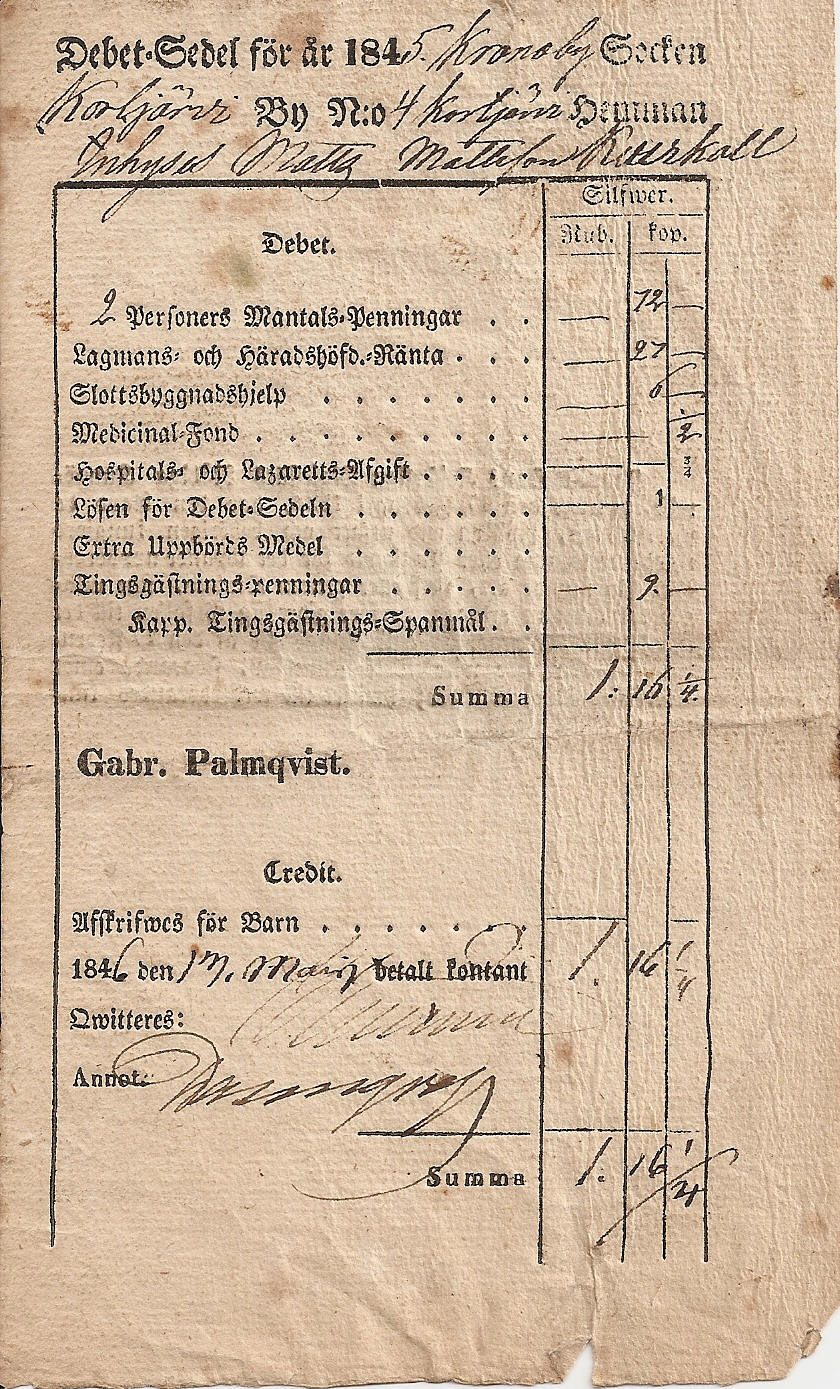 Debet-Sedel för år 1845. Kronoby Socken
Kortjärvi By N:o 4 Kortjärvi Hemman
Inhyses Matts Mattsson
Silfwer.
Debet. Rub. kop.
2 Personers Mantals-Penningar . . — 72 —
Lagmans- och Häradshöfd.-Ränta . . . — 27 —
Slottsbyggnadshjelp . . . . . . — 6 —
Medicinal-Fond . . . . . . . . — — 1/2
Hospitals- och Lazaretts-Afgift . . . . — — 3/4
Lösen för Debet-Sedeln . . . . . . — 1 —
Extra Uppbörds Medel . . . . . .
Tingsgästnings-penningar . . . . . — 9. —
Kapp. Tingsgästnings-Spanmål. . .
Summa 1. 16 1/4.
Gabr. Palmqvist.
Credit.
Afskrifwes för Barn . . . . . . .
1846 den 17. Mars betalt kontant 1. 16 1/4
Qwitteres:
Annot:
Summa 1. 16 1/4